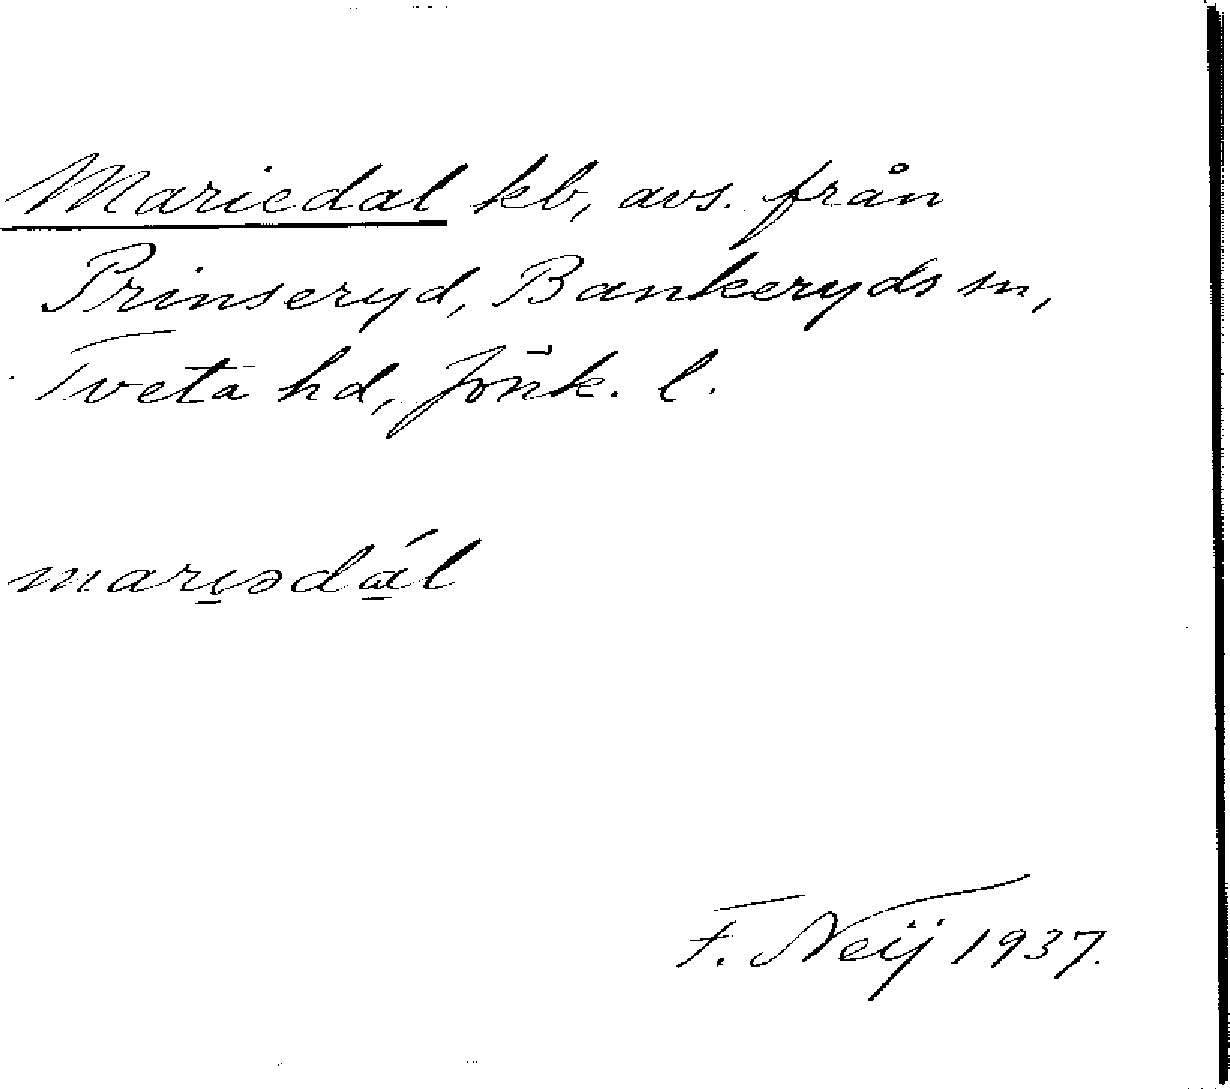 Mariedal kb, avs. från
Prinseryd, Bankeryds sn,
Tveta hd, Jönk. l.
mari̱ədá̱l
F. Neij 1937.